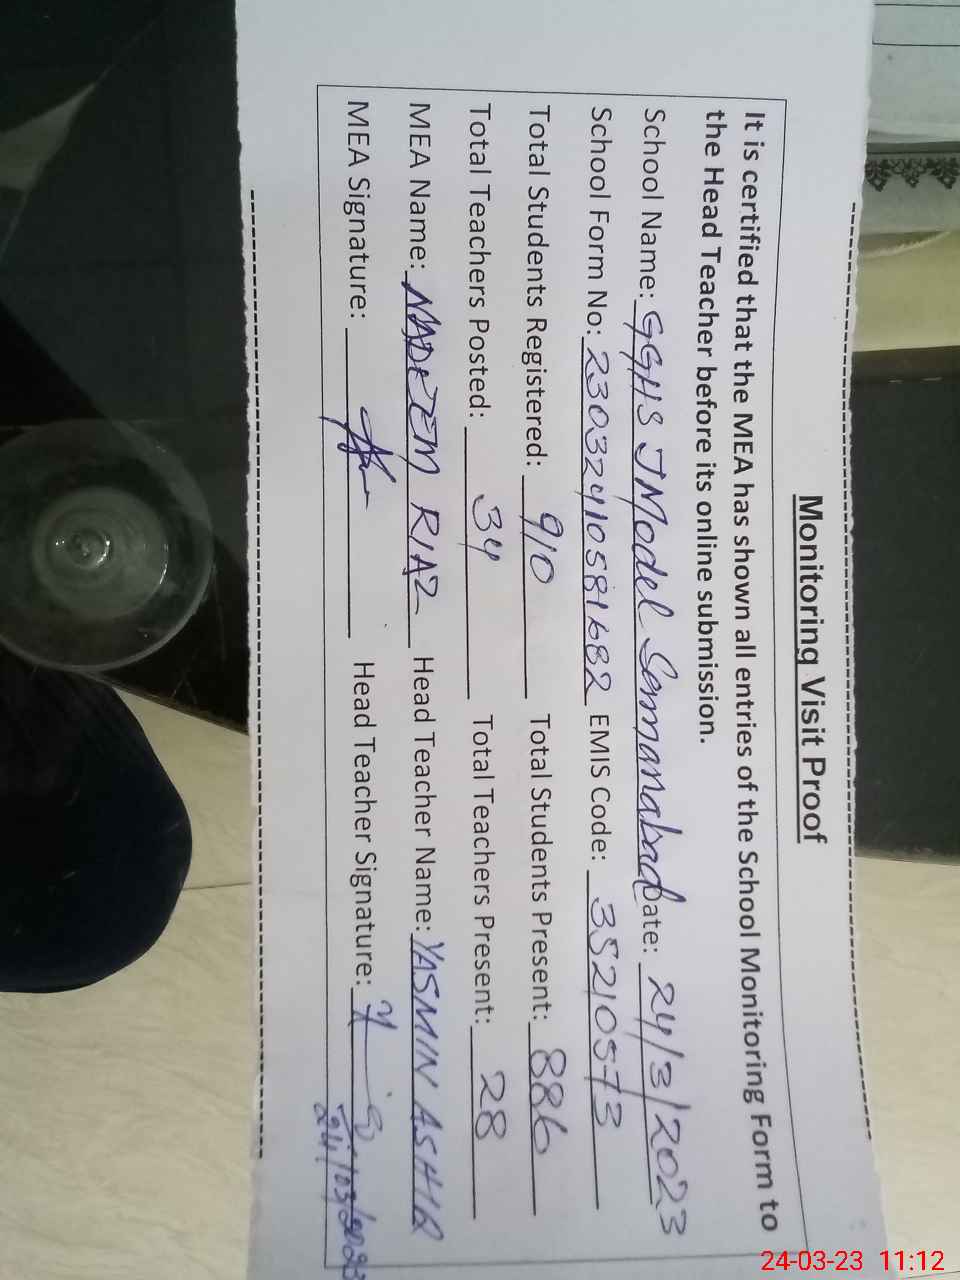 Monitoring Visit Proof
It is certified that the MEA has shown all entries of the School Monitoring Form to
the Head Teacher before its online submission.
School Name: GGHS J Model Samanabad Date: 24/3/2023
School Form No: 23032410581682 EMIS Code: 35210573
Total Students Registered: 910 Total Students Present: 886
Total Teachers Posted: 34 Total Teachers Present: 28
MEA Name: NADEEM RIAZ Head Teacher Name: YASMIN ASHIQ
MEA Signature: Head Teacher Signature:
24/03/2023
24-03-23 11:12